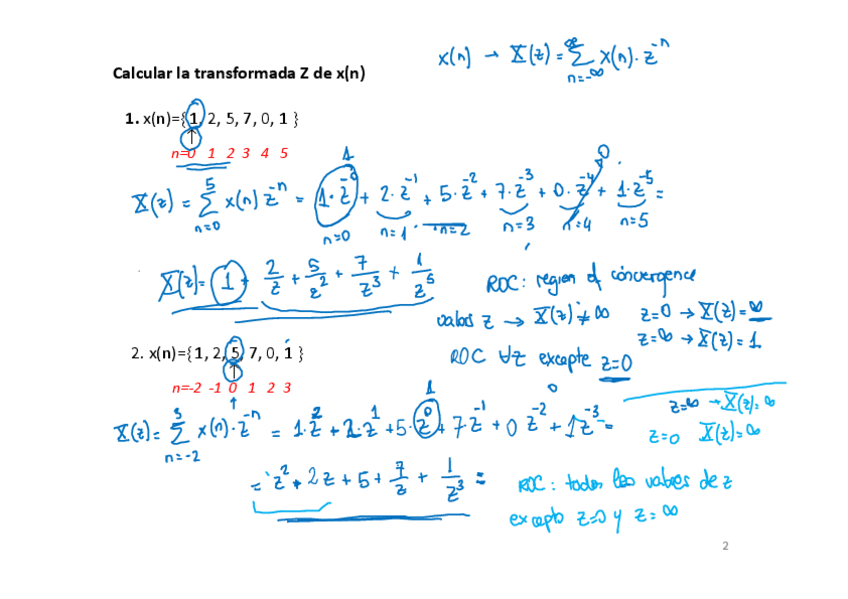 x(n) → X(z) = ∞ Σ n=-∞ x(n)·z^-n
Calcular la transformada Z de x(n)
1. x(n)={1, 2, 5, 7, 0, 1 }
↑
n=0 1 2 3 4 5
X(z) = 5 Σ n=0 x(n) z^-n = 1·z^-0 + 2·z^-1 + 5·z^-2 + 7·z^-3 + 0·z^-4 + 1·z^-5 =
1 0
n=0 n=1 n=2 n=3 n=4 n=5
X(z) = 1 + 2/z + 5/z^2 + 7/z^3 + 1/z^5
ROC: region of convergence
valores z → X(z) ≠ ∞ z=0 → X(z)=∞
z=∞ → X(z)=1
ROC ∀z excepte z=0
2. x(n)={1, 2, 5, 7, 0, 1 }
↑
n=-2 -1 0 1 2 3
↑
z=∞ → X(z)=∞
z=0 X(z)=∞
1 0
X(z) = 3 Σ n=-2 x(n)·z^-n = 1·z^2 + 2·z^1 + 5·z^0 + 7z^-1 + 0 z^-2 + 1z^-3 =
= z^2 + 2z + 5 + 7/z + 1/z^3 =
ROC: todos los valores de z
excepto z=0 y z=∞
2